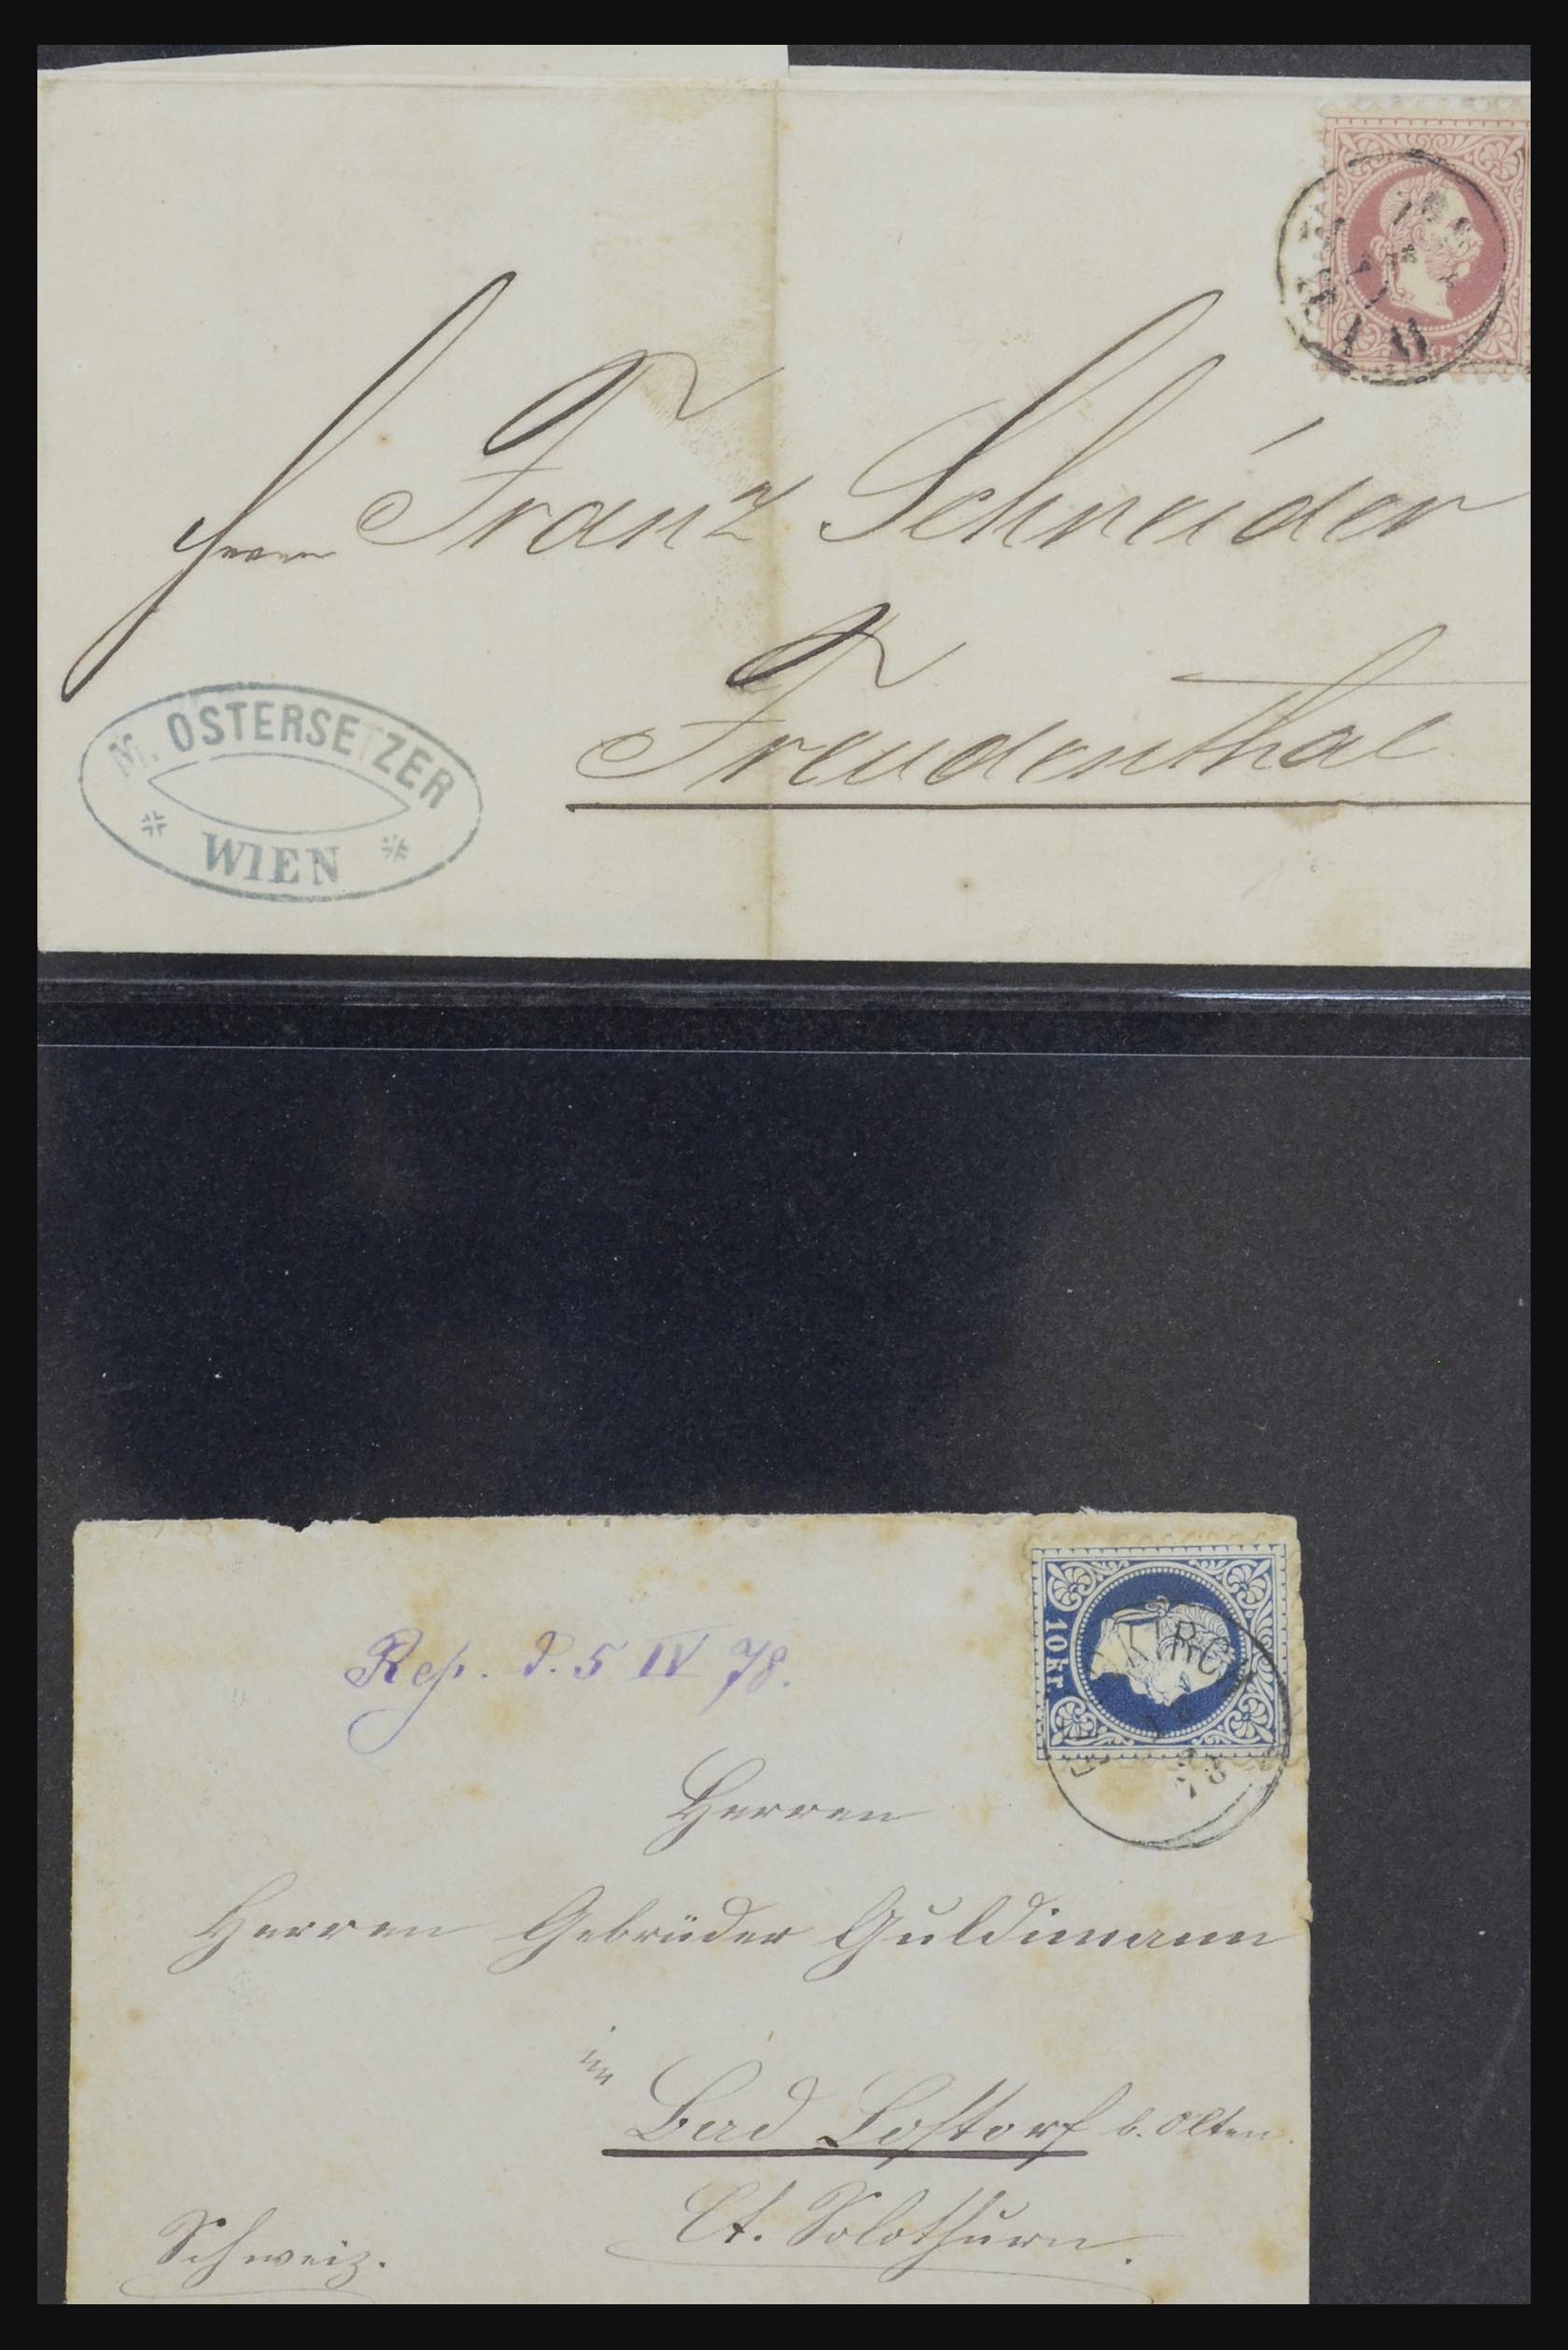 Herrn Franz Schneider
Freudenthal
M. OSTERSETZER
WIEN
10 kr.
Rep. d. 5 IV 78.
Herren
Herren Gebrüder Guldimann
in
Bad Lostorf b. Olten.
Ct. Solothurn.
Schweiz.